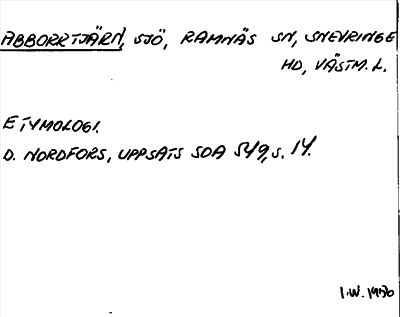 ABBORRTJÄRN, SJÖ, RAMNÄS SN, SNEVRINGE
HD, VÄSTM. L.
ETYMOLOGI.
D. NORDFORS, UPPSATS SOA 549, S. 14.
I.W. 1956